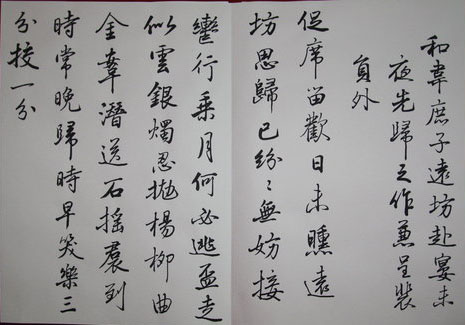 和韋庶子遠坊赴宴未
夜先歸之作兼呈裴
員外
促席留歡日未曛遠
坊思歸已紛々無妨按
轡行乘月何必逃盃走
似雲銀燭忍拋楊柳曲
金鞍潛送石榴裙到
時常晚歸時早笑樂三
分校一分